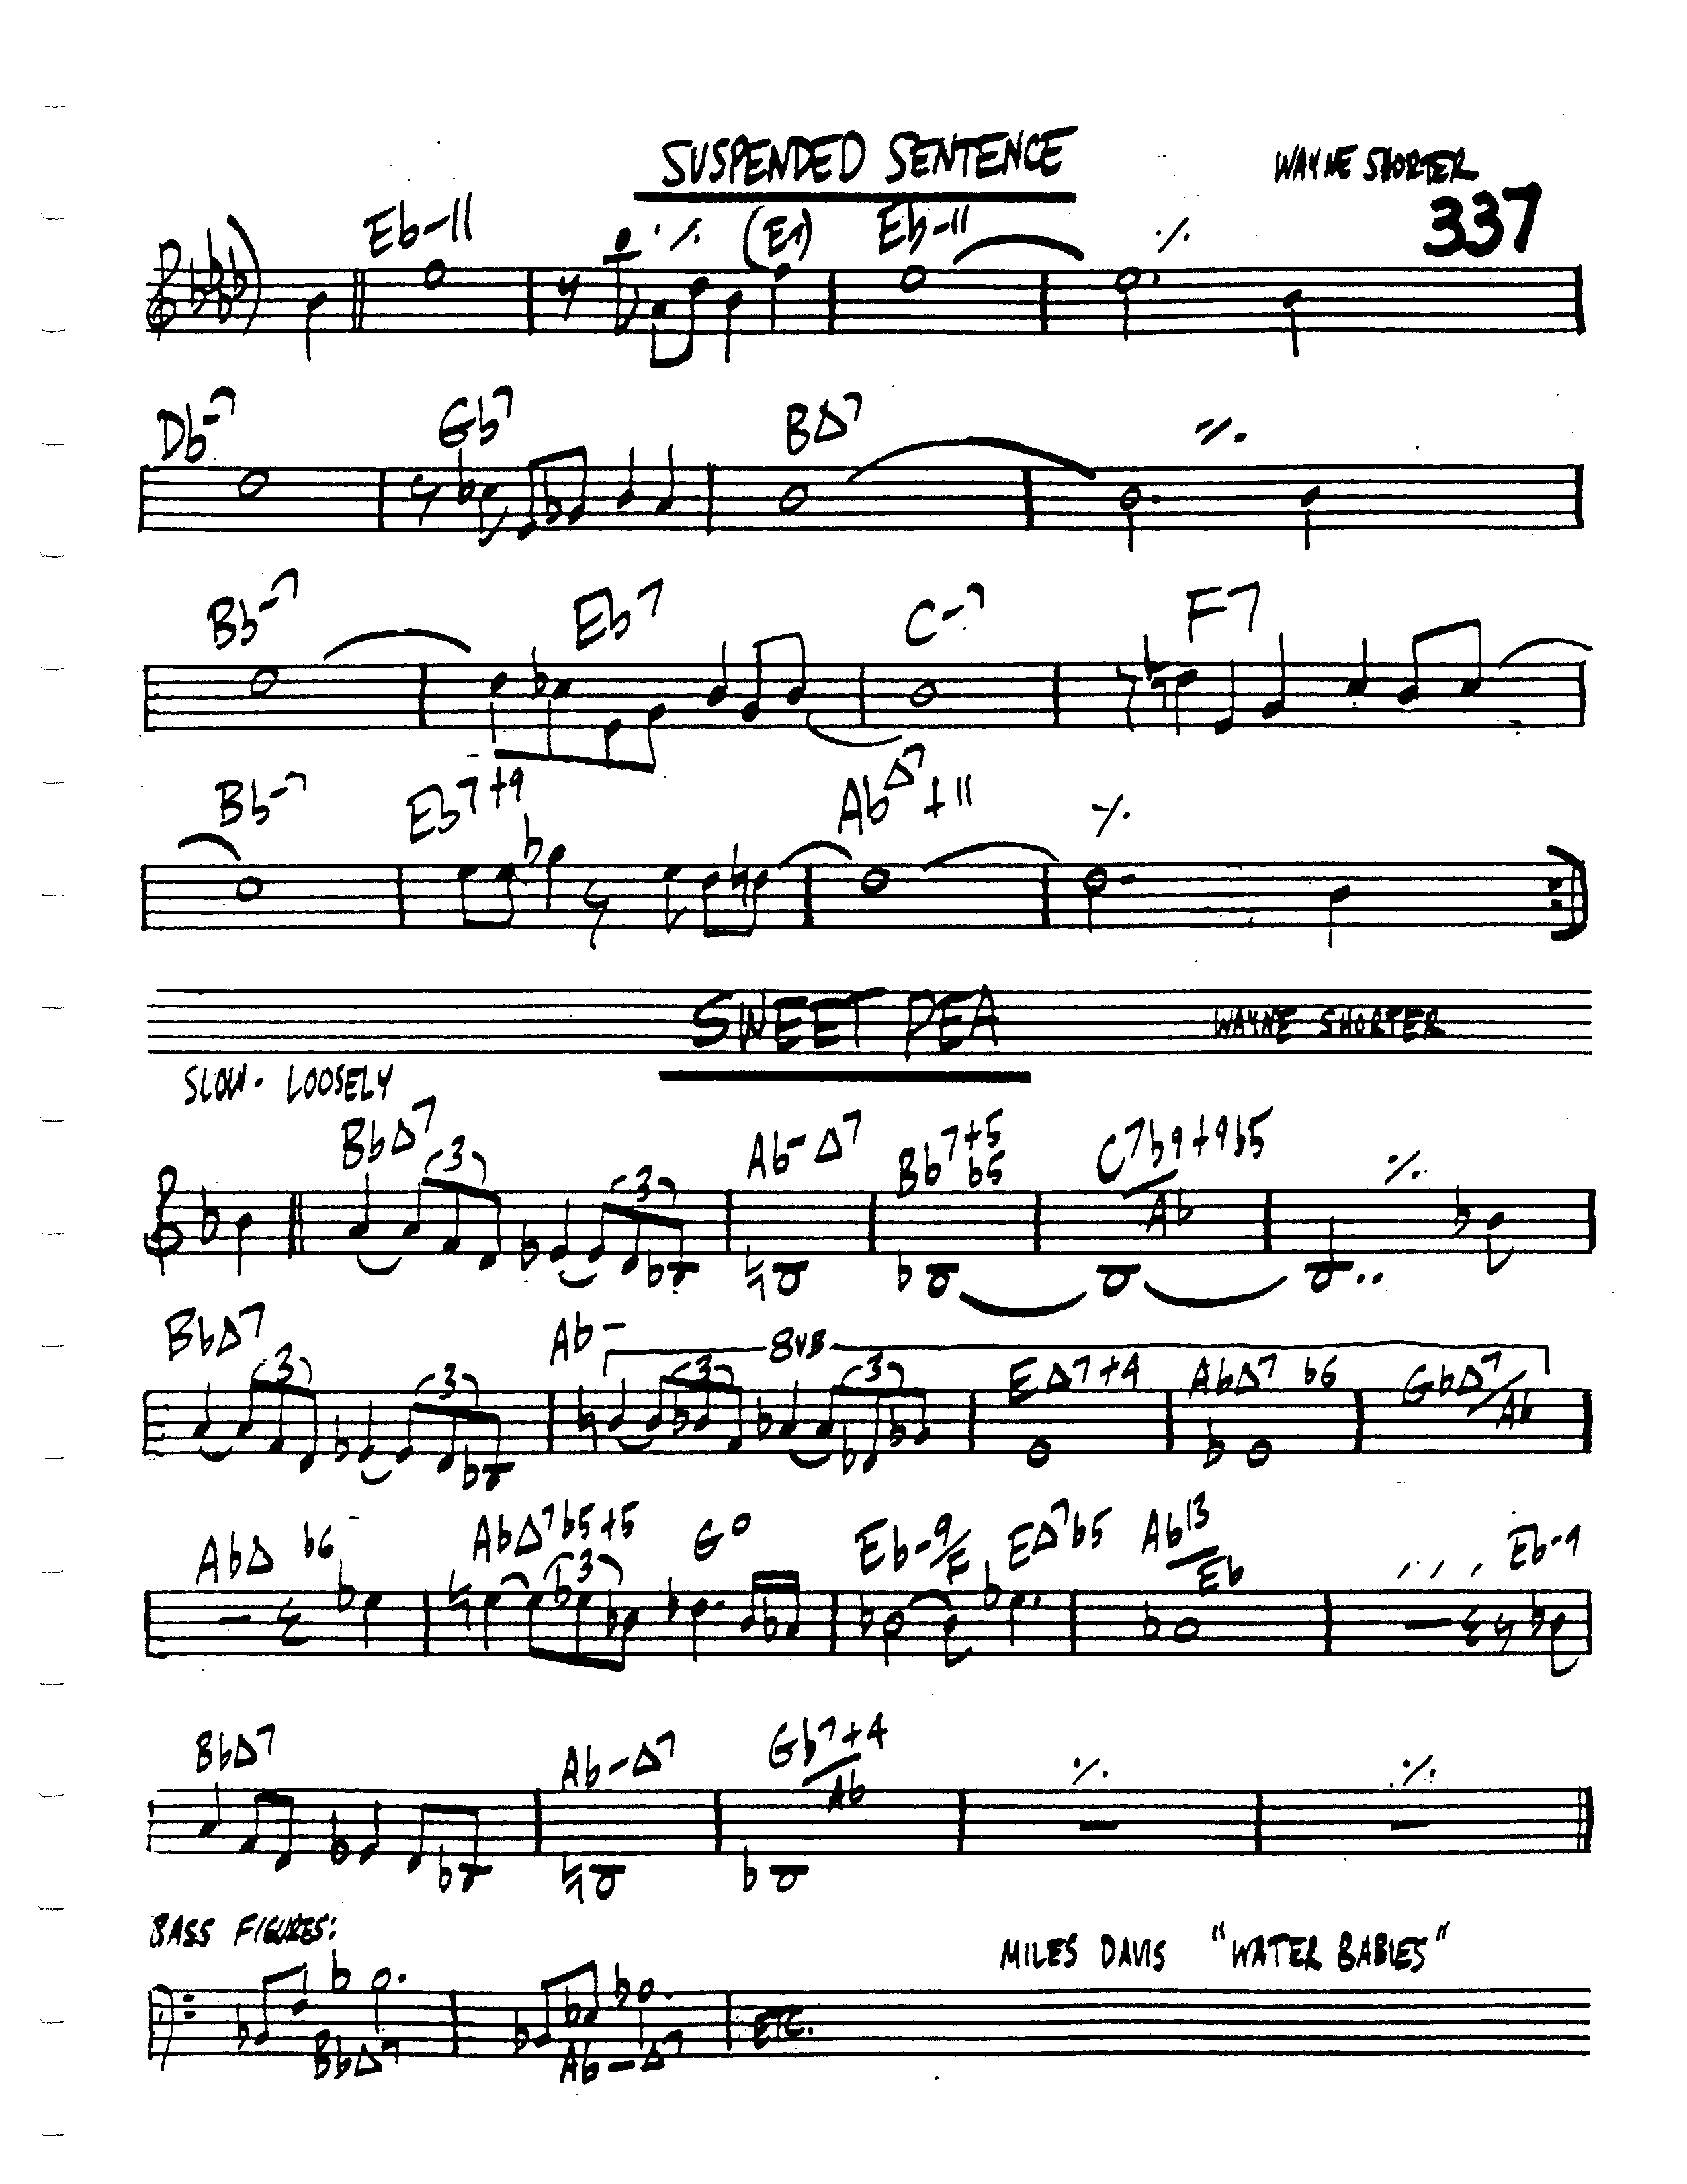 SUSPENDED SENTENCE WAYNE SHORTER
337
Eb-11 ٪ (E7) Eb-11 ٪
Db-7 Gb7 BΔ7 ٪
Bb-7 Eb7 C-7 F7
Bb-7 Eb7+9 AbΔ7+11 ٪
SWEET PEA WAYNE SHORTER
SLOW. LOOSELY
BbΔ7 Ab-Δ7 Bb7+5b5 C7b9+9b5/Ab ٪
3 3
BbΔ7 Ab- 8VB
3 3 3 3 EΔ7+4 AbΔ7 b6 GbΔ7/Ab
AbΔ b6 AbΔ7b5+5 G° Eb-9/F EΔ7b5 Ab13/Eb Eb-9
3
BbΔ7 Ab-Δ7 Gb7+4/Ab ٪ ٪
BASS FIGURES: MILES DAVIS "WATER BABIES"
BbΔ7 Ab-Δ7 ETC.